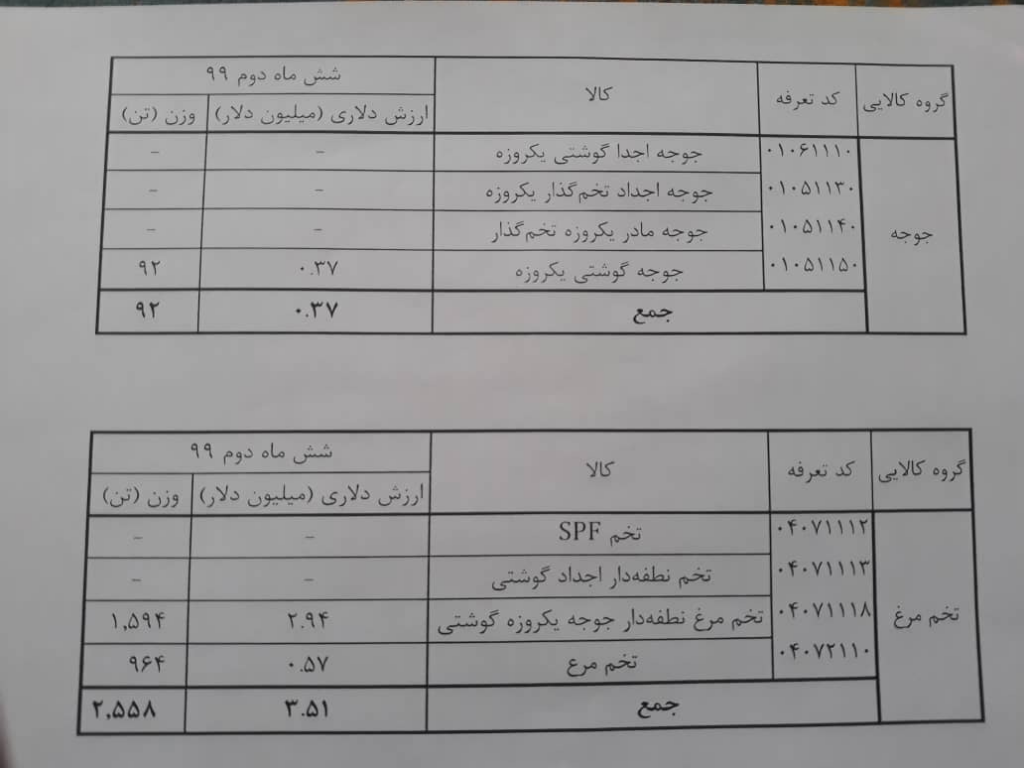 گروه کالایی | کد تعرفه | کالا | شش ماه دوم ۹۹
ارزش دلاری (میلیون دلار) | وزن (تن)
جوجه | ۰۱۰۶۱۱۱۰ | جوجه اجدا گوشتی یکروزه | - | -
۰۱۰۵۱۱۳۰ | جوجه اجداد تخم‌گذار یکروزه | - | -
۰۱۰۵۱۱۴۰ | جوجه مادر یکروزه تخم‌گذار | - | -
۰۱۰۵۱۱۵۰ | جوجه گوشتی یکروزه | ۰.۳۷ | ۹۲
جمع | ۰.۳۷ | ۹۲
گروه کالایی | کد تعرفه | کالا | شش ماه دوم ۹۹
ارزش دلاری (میلیون دلار) | وزن (تن)
تخم مرغ | ۰۴۰۷۱۱۱۲ | تخم SPF | - | -
۰۴۰۷۱۱۱۳ | تخم نطفه‌دار اجداد گوشتی | - | -
۰۴۰۷۱۱۱۸ | تخم مرغ نطفه‌دار جوجه یکروزه گوشتی | ۲.۹۴ | ۱,۵۹۴
۰۴۰۷۲۱۱۰ | تخم مرع | ۰.۵۷ | ۹۶۴
جمع | ۳.۵۱ | ۲,۵۵۸